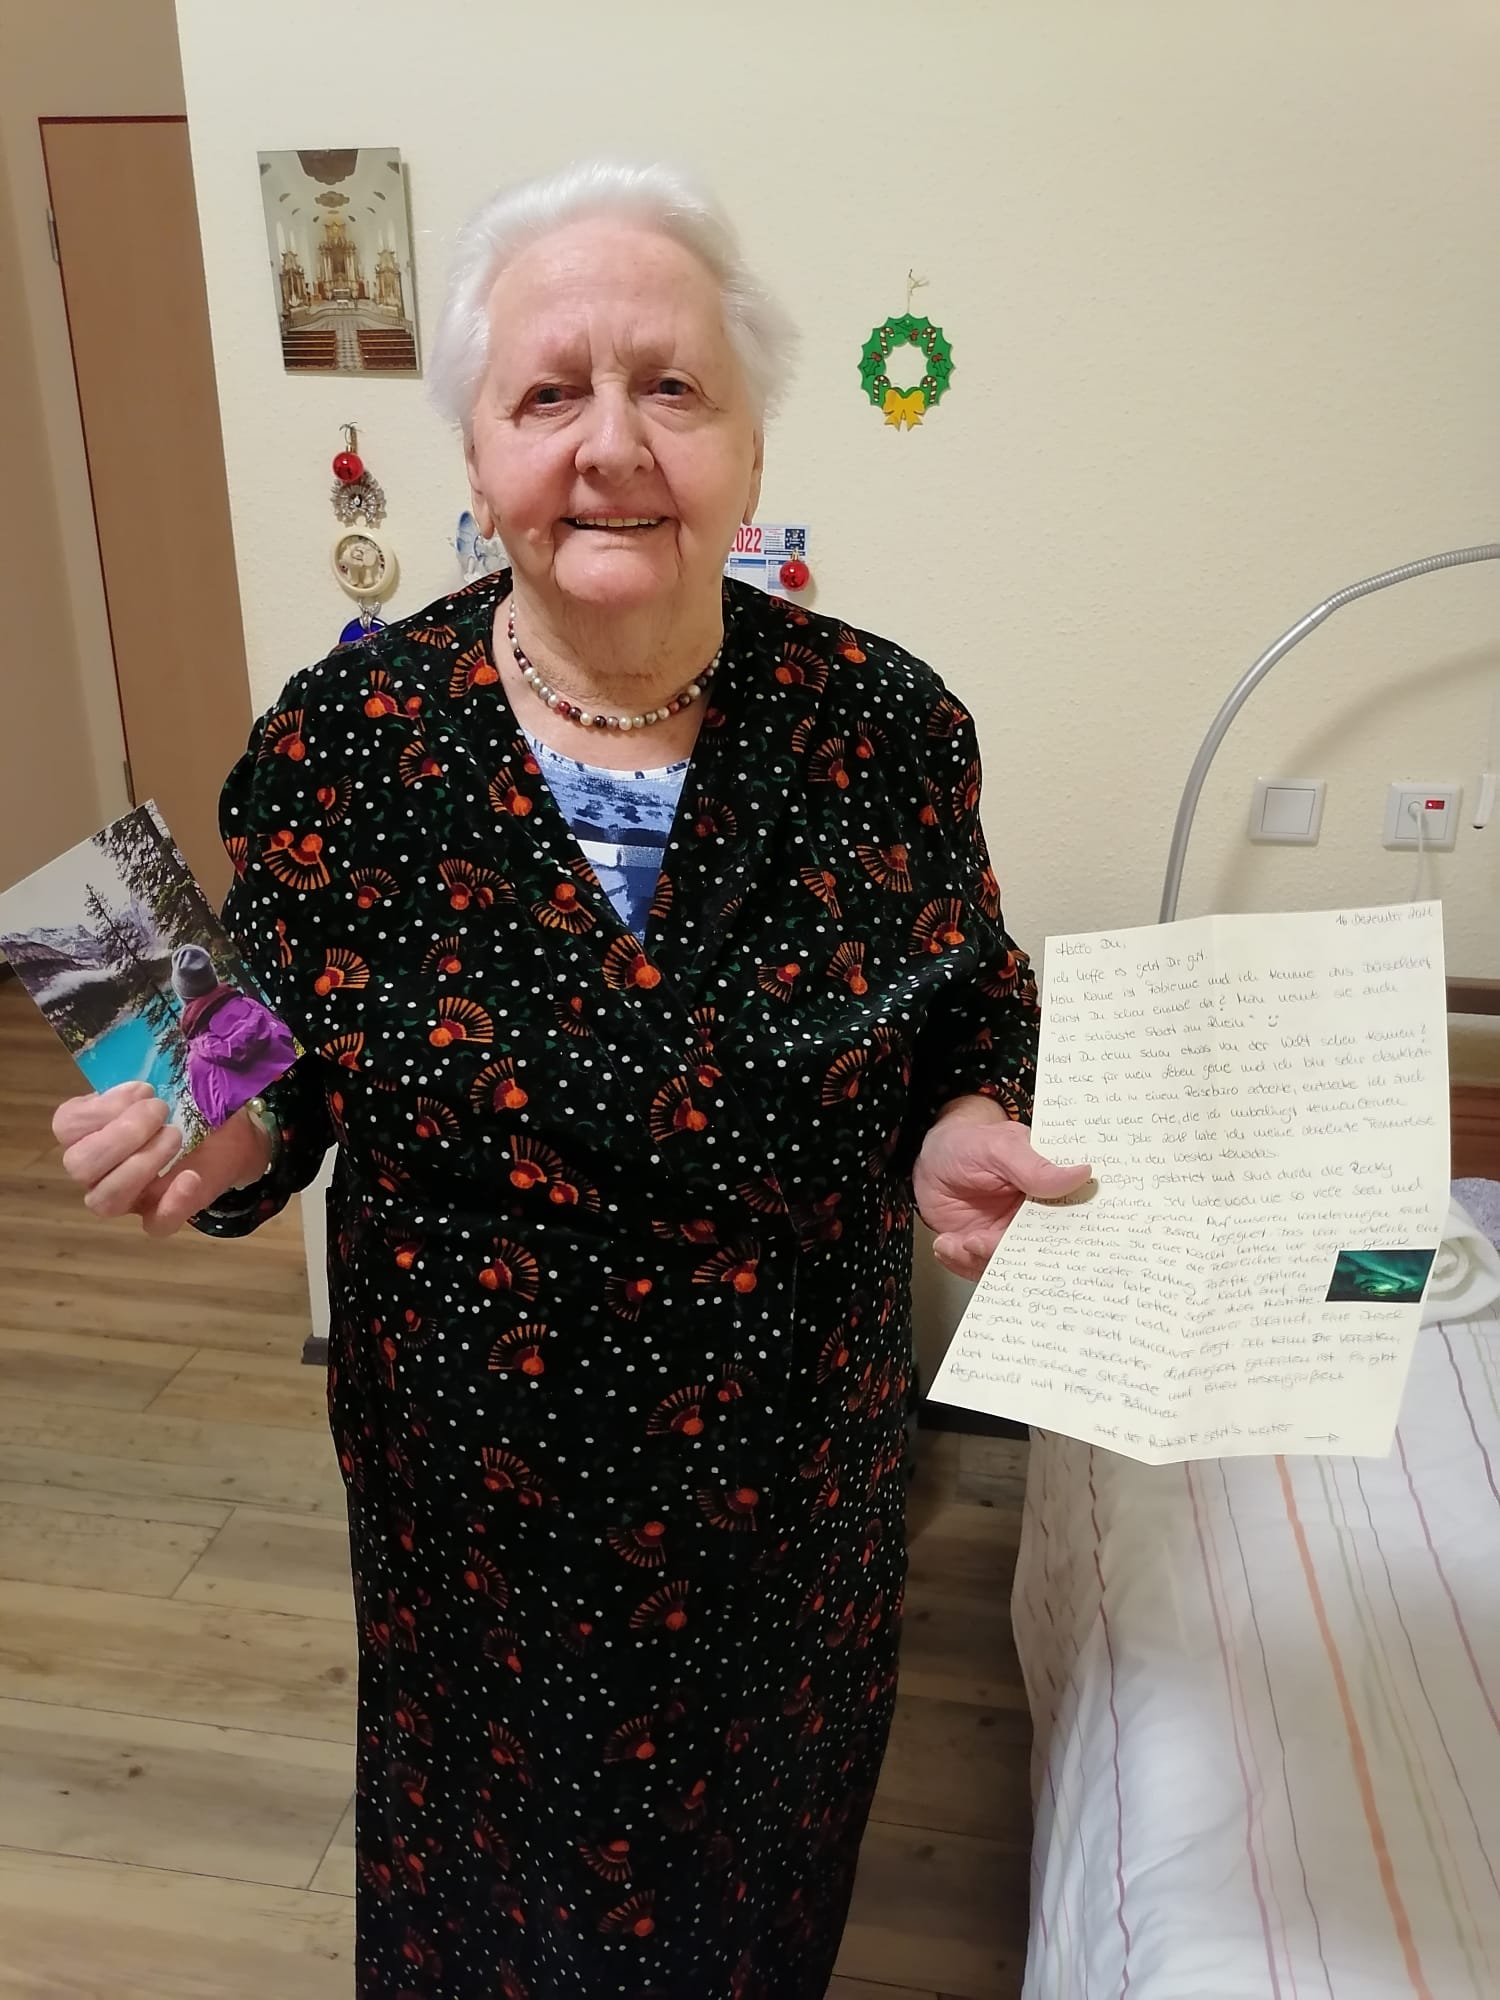 2022
16. Dezember 2021
Hallo Du,
ich hoffe es geht Dir gut.
Mein Name ist Fabienne und ich komme aus Düsseldorf
Warst Du schon einmal da? Man nennt sie auch
"die schönste Stadt am Rhein" ☺
Hast Du denn schon etwas von der Welt sehen können?
Ich reise für mein Leben gerne und ich bin sehr dankbar
dafür. Da ich in einem Reisebüro arbeite, entdecke ich auch
immer mehr neue Orte, die ich unbedingt kennenlernen
möchte. Im Jahr 2018 habe ich meine absolute Traumreise
machen dürfen, in den Westen Kanadas.
Calgary gestartet und sind durch die Rocky
gefahren. Ich habe noch nie so viele Seen und
Berge auf einmal gesehen. Auf unseren Wanderungen sind
wir sogar Elchen und Bären begegnet. Das war wirklich ein
einmaliges Erlebnis. In einer Nacht hatten wir sogar Glück
und konnte an einem See die Polarlichter sehen.
Dann sind wir weiter Richtung Pazifik gefahren.
Auf dem Weg dorthin habe wir eine Nacht auf einer
Ranch geschlafen und hatten sogar
Danach ging es weiter nach Vancouver Island, eine Insel
die genau vor der Stadt Vancouver liegt. Ich kann Dir verraten,
dass das mein absoluter geworden ist. Es gibt
dort wunderschöne Strände und einen riesengroßen
Regenwald mit riesigen Bäumen
auf der Rückseite geht's weiter →